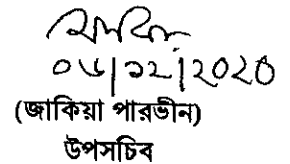 ০৬|১২|২০২০
(জাকিয়া পারভীন)
উপসচিব